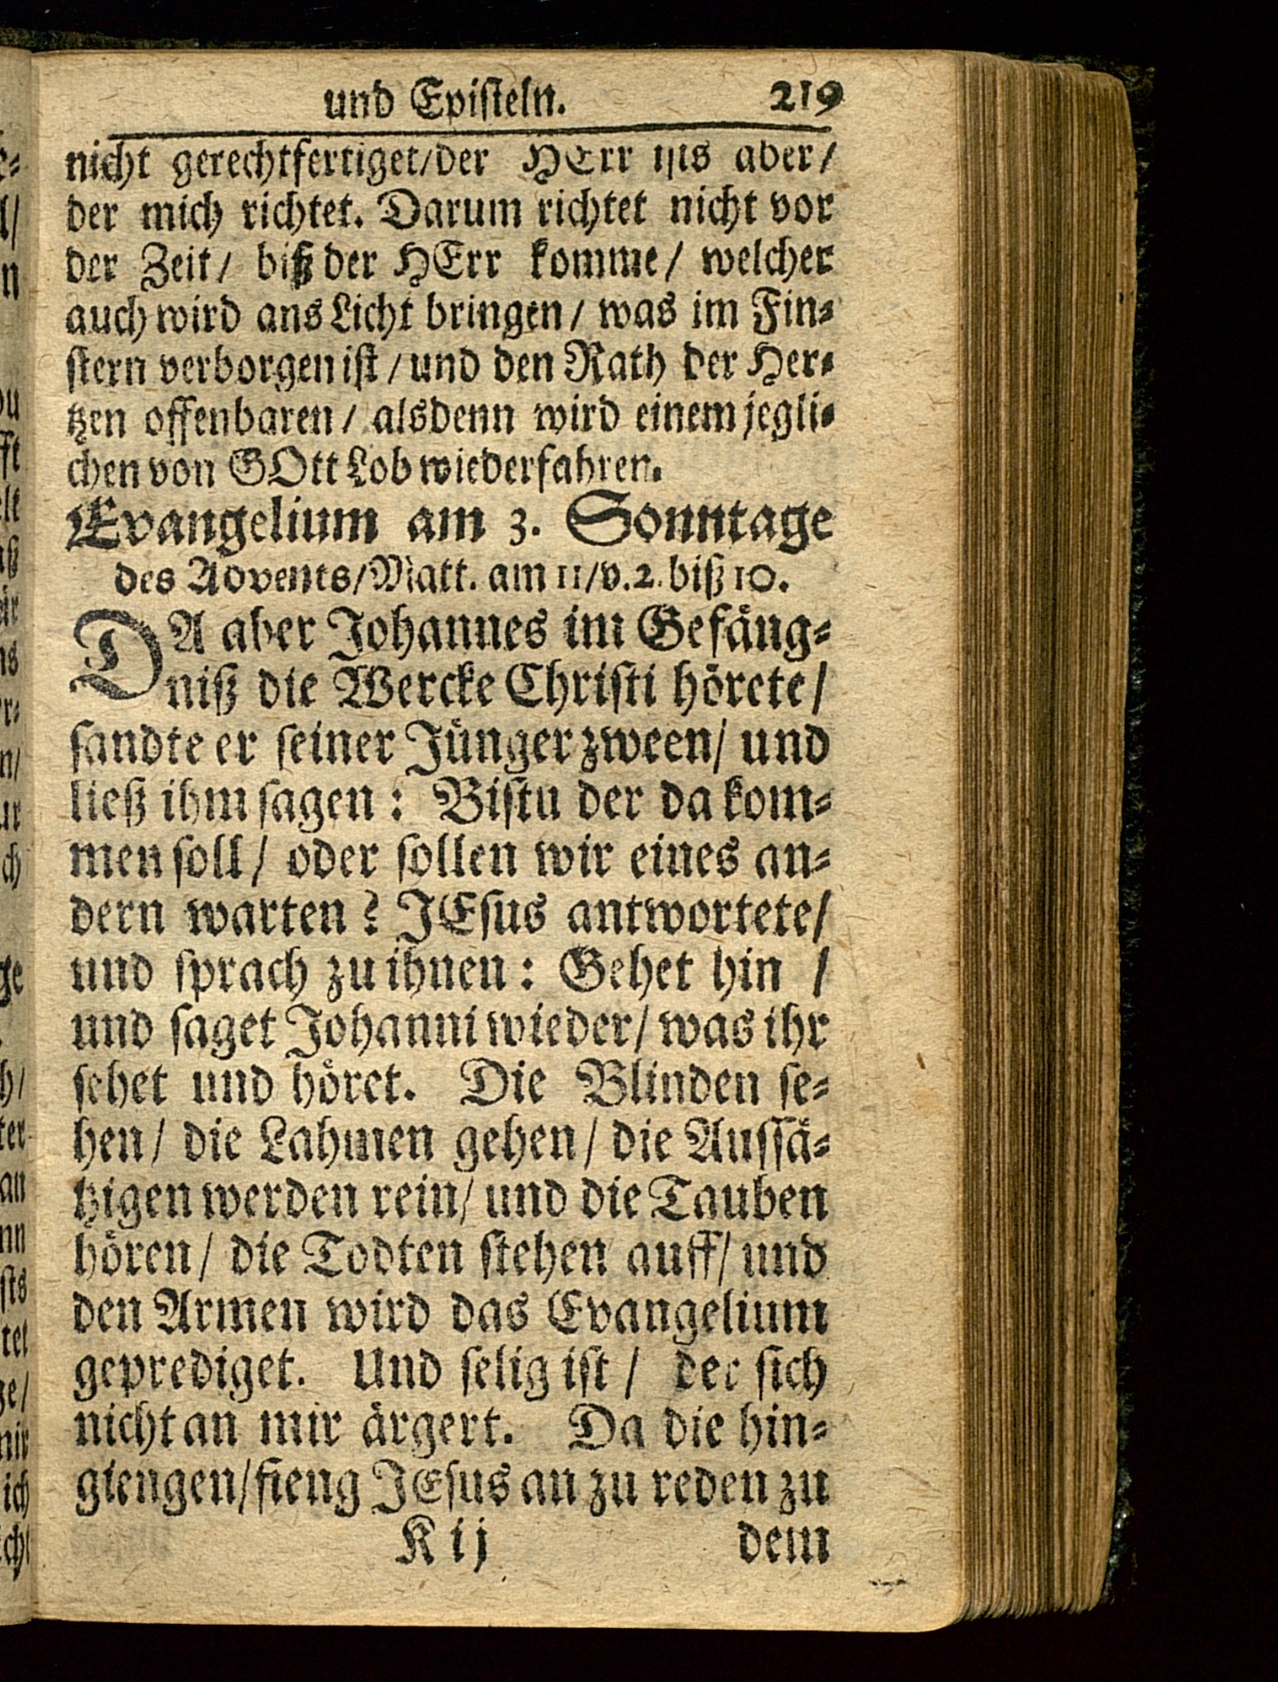 und Epiſteln. 219
nicht gerechtfertiget/der HErr iſts aber/
der mich richtet. Darum richtet nicht vor
der Zeit/ biß der HErr komme/ welcher
auch wird ans Licht bringen/ was im Fin⸗
ſtern verborgen iſt/und den Rath der Her⸗
tzen offenbaren/ alsdenn wird einem jegli⸗
chen von GOtt Lob wiederfahren.
Evangelium am 3. Sonntage
des Advents/Matt. am 11/v.2. biß 10.
DA aber Johannes im Gefäng⸗
niß die Wercke Chriſti hörete/
ſandte er ſeiner Jünger zween/ und
ließ ihm ſagen: Biſtu der da kom⸗
men ſoll/ oder ſollen wir eines an⸗
dern warten? JEſus antwortete/
und ſprach zu ihnen: Gehet hin /
und ſaget Johanni wieder/ was ihr
ſehet und höret. Die Blinden ſe⸗
hen/ die Lahmen gehen/ die Auſſä⸗
tzigen werden rein/ und die Tauben
hören/ die Todten ſtehen auff/ und
den Armen wird das Evangelium
geprediget. Und ſelig iſt/ der ſich
nicht an mir ärgert. Da die hin⸗
giengen/fieng JEſus an zu reden zu
K ij dem